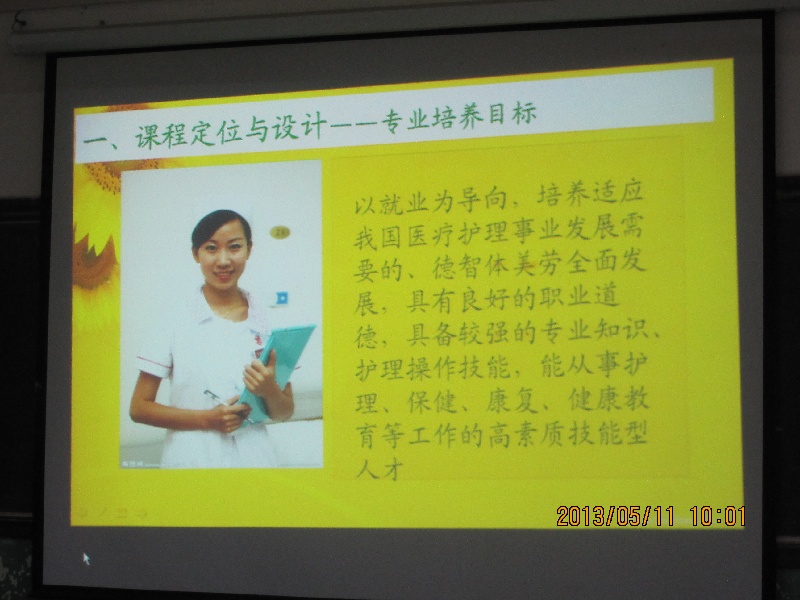 一、课程定位与设计——专业培养目标
以就业为导向，培养适应
我国医疗护理事业发展需
要的、德智体美劳全面发
展，具有良好的职业道
德，具备较强的专业知识、
护理操作技能，能从事护
理、保健、康复、健康教
育等工作的高素质技能型
人才
2013/05/11 10:01